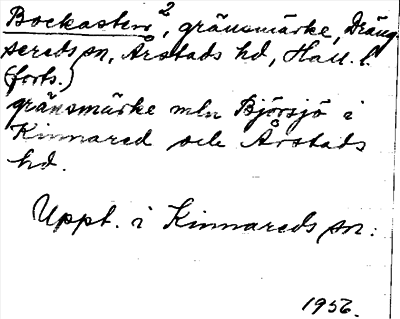 Bockasten 2, gränsmärke, Dräng
sereds sn, Årstads hd, Hall. l.
(forts.)
gränsmärke mln Björsjö i
Kinnared och Årstads
hd.
Uppt. i Kinnareds sn.
1956.